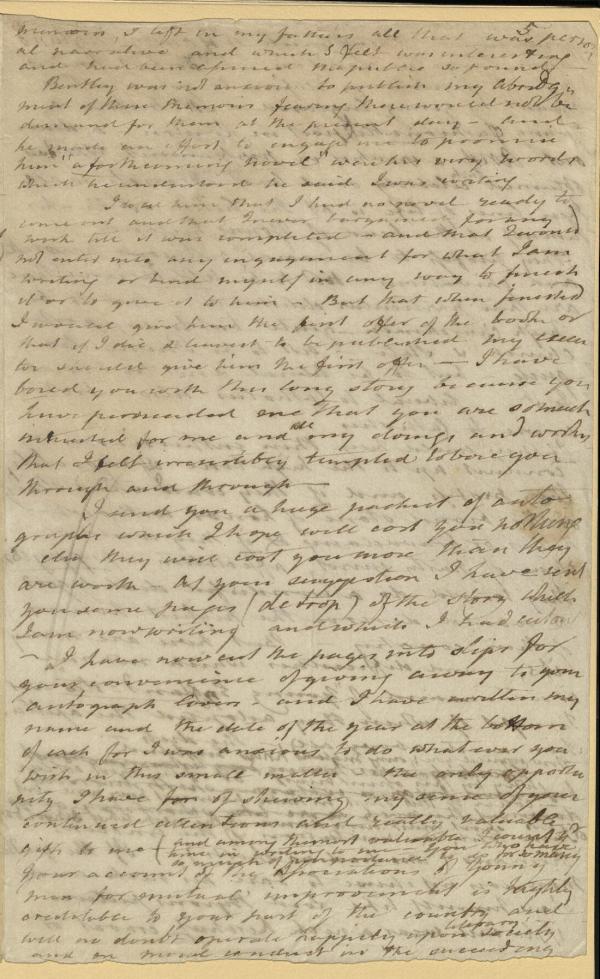 5
memoirs, I left in my fathers all that was person
al narrative and which I felt was interesting
and had been found so
Bentley was not anxious to publish my abridg
ment of these memoirs fearing there would not be
demand for them at the present day – and
he made an effort to engage me to promise
him "a forthcoming novel" were his very words
which he understood he said I was writing
I told him that I had no novel ready to
come out and that I never bargained for any
work till it was completed – and that I would
not enter into any engagement for what I am
writing or bind myself in any way to finish
it or to give it to him – But that when finished
I would give him the first offer of the book or
that if I die & leave it to be published my execu
tor should give him the first offer – I have
bored you with this long story because you
have persuaded me that you are so much
interested for me and all my doings and works
that I felt irresistibly tempted to bore you
through and through –
I send you a huge packet of auto
graphs which I hope will cost you nothing
else they will cost you more than they
are worth – At your suggestion I have sent
you some pages (de trop) of the story which
I am now writing and which I had cut out
– I have now cut the pages into slips for
your convenience of giving away to your
autograph lovers – and I have written my
name and the date of the year at the bottom
of each for I was anxious to do what ever you
wish in this small matter the only opportu
nity I have for of shewing my sense of your
continued attentions and really valuable
gifts to me (and among the most valuable I count
in writing to me you who have
so much of to do for so many
your account of the associations of young
men for mutual improvement is highly
creditable to your part of the country and
will no doubt operate happily upon literary society
and on moral conduct in the succeeding